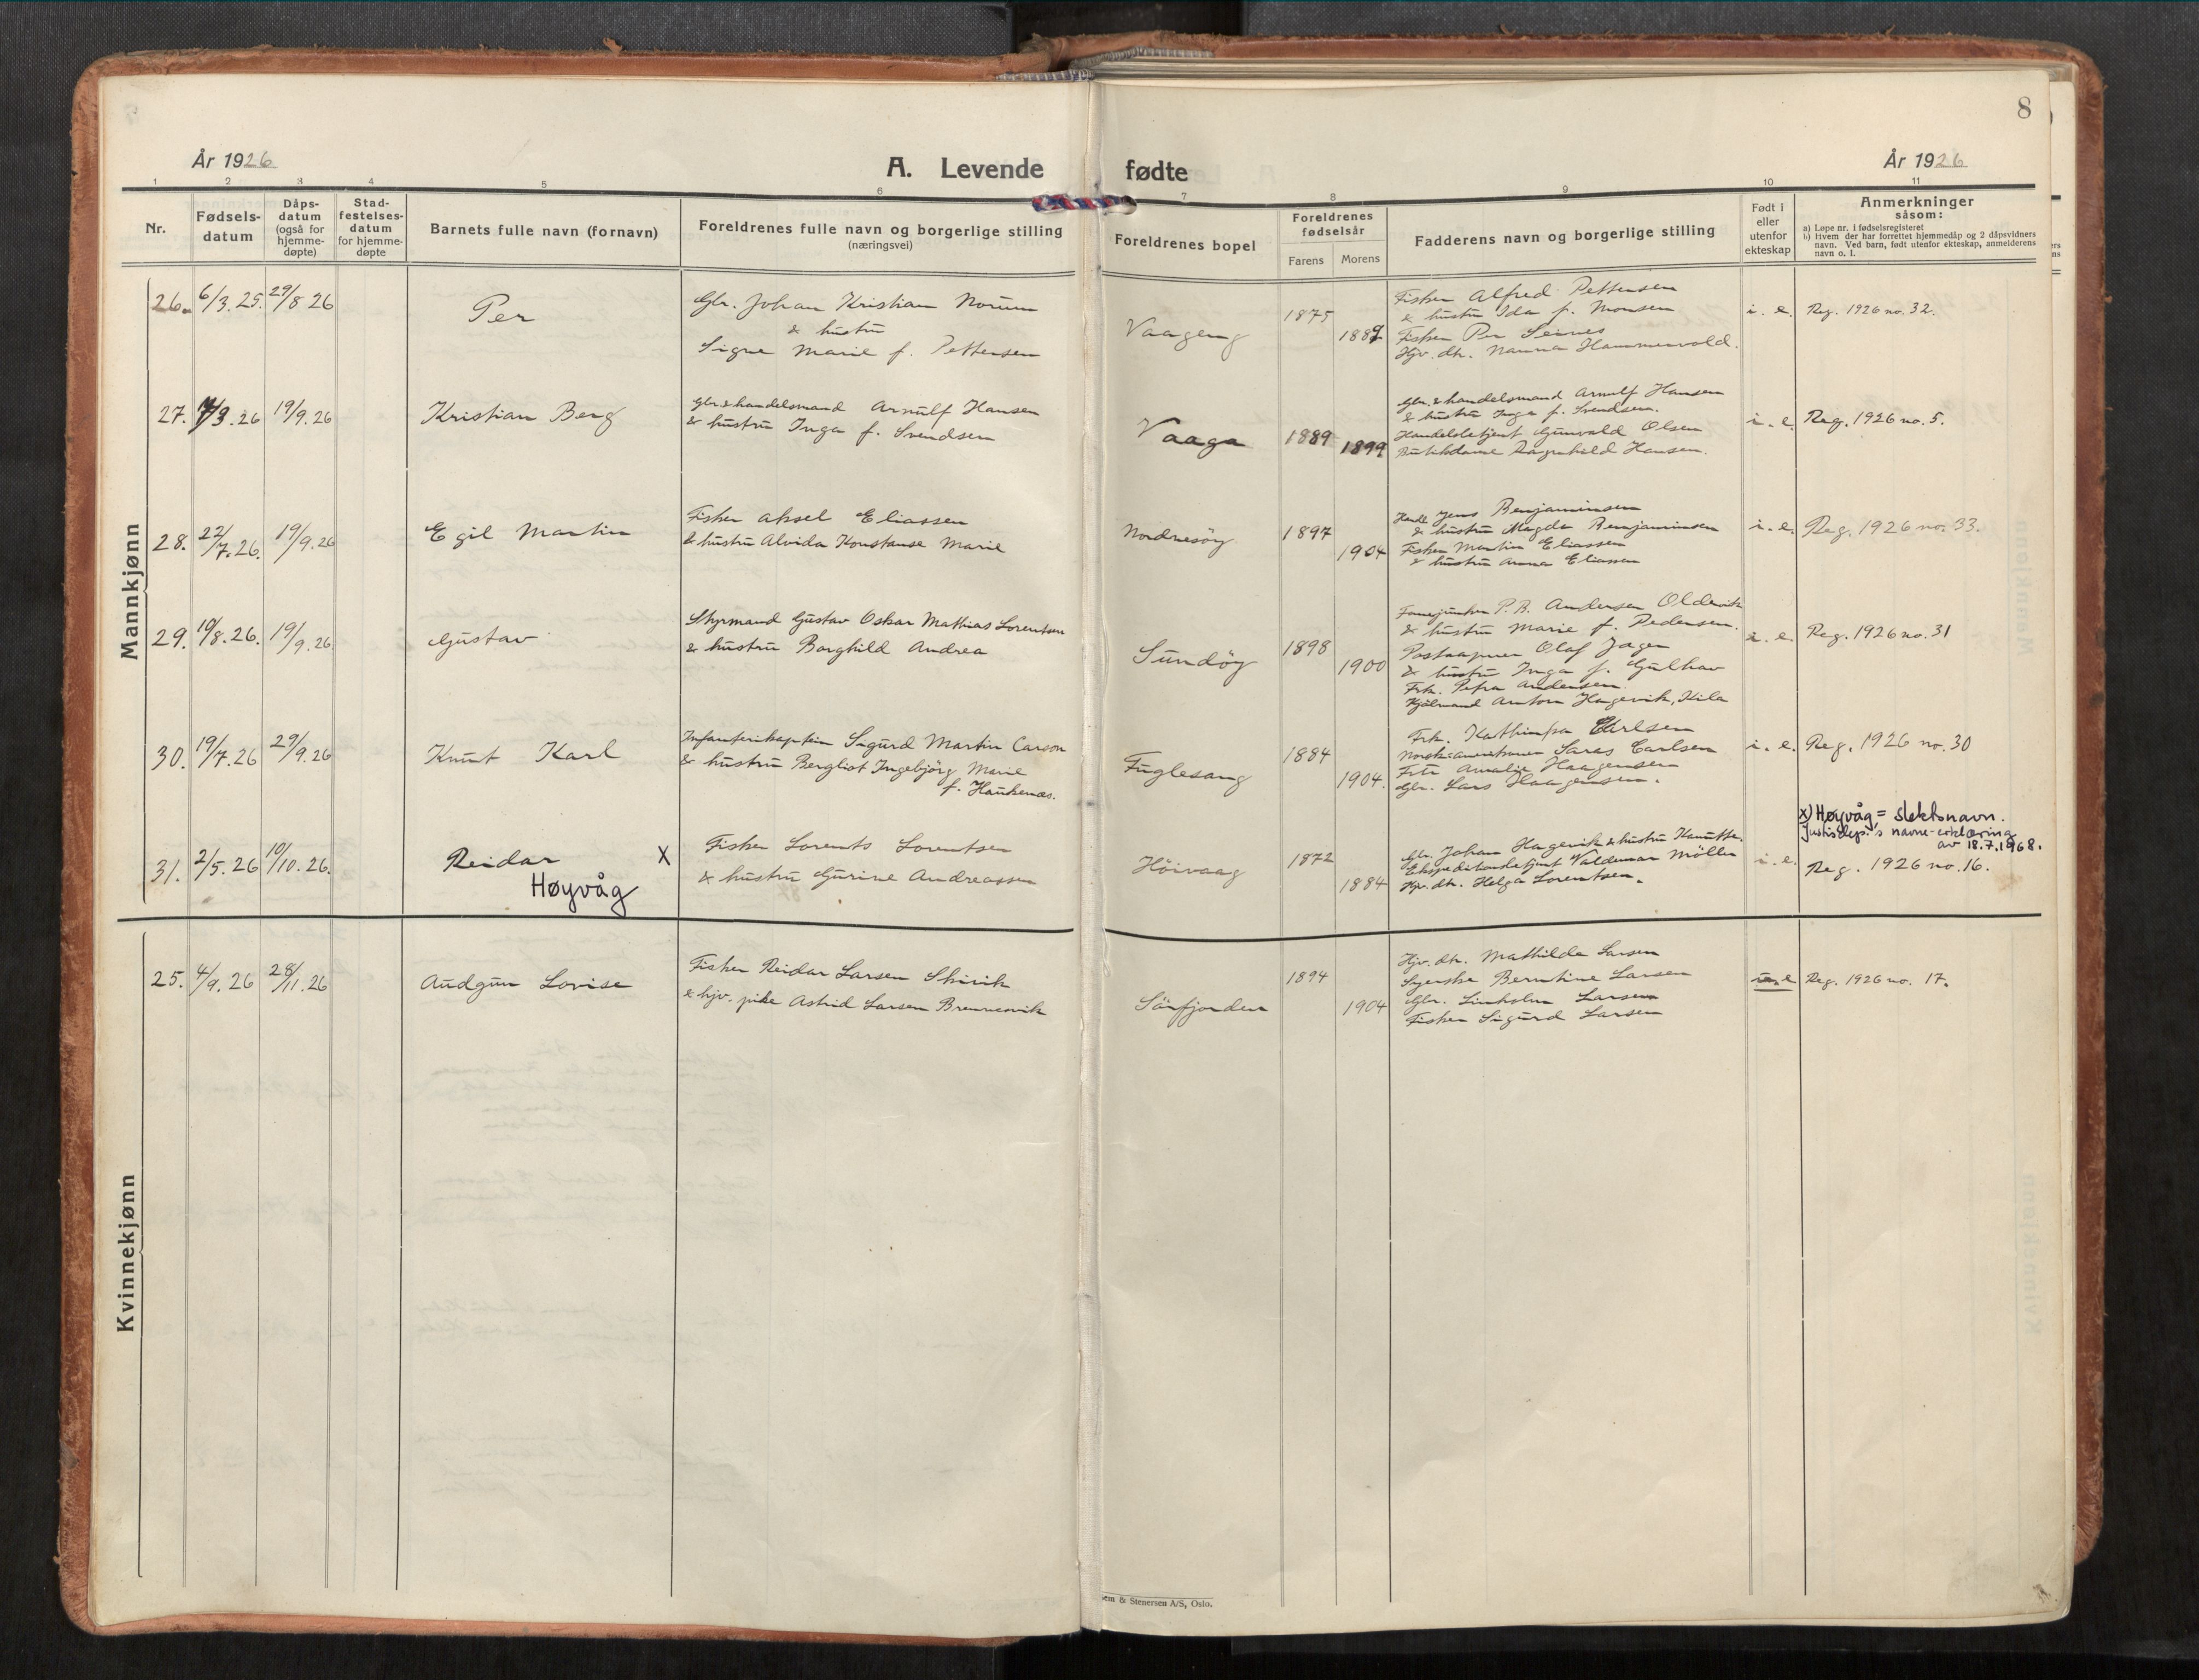 8
År 1926
A. Levende fødte
År 1926
1 2 3 4 5 6 7 8 9 10 11
Nr.
Fødsels-
datum
Dåps-
datum
(også for
hjemme-
døpte)
Stad-
festelses-
datum
for hjemme-
døpte
Barnets fulle navn (fornavn)
Foreldrenes fulle navn og borgerlige stilling
(næringsvei)
Foreldrenes bopel
Foreldrenes
fødselsår
Farens
Morens
Fadderens navn og borgerlige stilling
Født i
eller
utenfor
ekteskap
Anmerkninger
såsom:
a) Løpe nr. i fødselsregisteret
b) Hvem der har forrettet hjemmedåp og 2 dåpsvidners
navn. Ved barn, født utenfor ekteskap, anmelderens
navn o. l.
Mannkjønn
26. 6/3. 25. 29/8 26
Per
Gbr. Johan Kristian Norum
& hustru
Signe Marie f. Pettersen
Vaageng
1875
1889
Fisker Alfred Pettersen
& hustru Ida f. Monsen
Fisker Per Seines
Hjv. dtr. Nanna Hammervold.
i. e.
Reg. 1926 no. 32.
27. 7/3. 26 19/9. 26
Kristian Berg
Gbr. & handelsmand Arnulf Hansen
& hustru Inga f. Svendsen
Vaaga
1889
1899
Gbr. & handelsmand Arnulf Hansen
& hustru Inga f. Svendsen.
Handelsbetjent Gunvald Olsen
Ragnhild Hansen.
i. e.
Reg. 1926 no. 5.
28. 22/7. 26. 19/9. 26
Egil Martin
Fisker Aksel Eliassen
& hustru Alvida Konstanse Marie
Nordnesöy
1897
1904
Jens Benjaminsen
& hustru Magda Benjaminsen
Fisker Martin Eliassen
& hustru Anna Eliassen
i. e.
Reg. 1926 no. 33.
29. 19/8. 26. 19/9. 26
Gustav
Styrmand Gustav Oskar Mathias Lorentsen
& hustru Borghild Andrea
Sundöy
1898
1900
Fanejunker P. B. Andersen Oldervik
& hustru Marie f. Pedersen.
Postaapner Olaf Jagen
& hustru Inga f. Gulhav
Frk. Petra Andersen.
Anton Hagevik, Kila
i. e.
Reg. 1926 no. 31
30. 19/7. 26 29/9. 26
Knut Karl
Infanterikaptein Sigurd Martin Carson
& hustru Bergliot Ingebjörg Marie
f. Haukenæs.
Fuglesang
1884
1904.
Frk. Kathinka Carlsen
Norsk-amerikaner Saras Carlsen
Frk. Amalie Haagensen
Gbr. Lars Haagensen.
i. e.
Reg. 1926 no. 30
31. 2/5. 26 10/10. 26.
Reidar X
Høyvåg
Fisker Lorents Lorentsen
& hustru Gurine Andreassen
Höivaag
1872
1884
Gbr. Johan Hagevik & hustru Kanutte.
Ekspeditionsbetjent Valdemar Möller
Hjv. dtr. Helga Lorentsen.
i. e.
x) Høyvåg = slektsnavn.
Justisdep.'s navne-erklæring
av 18.7.1968.
Reg. 1926 no. 16.
Kvinnekjønn
25. 4/9. 26 28/11. 26
Audgun Lovise
Fisker Reidar Larsen Skivik
& hjv. pike Astrid Larsen Brennesvik
Sörfjorden
1894
1904
Hjv. dtr. Mathilde Larsen
Syerske Berntine Larsen
Gbr. Larsen
Fisker Sigurd Larsen
u. e.
Reg. 1926 no. 17.
& Stenersen A/S, Oslo.